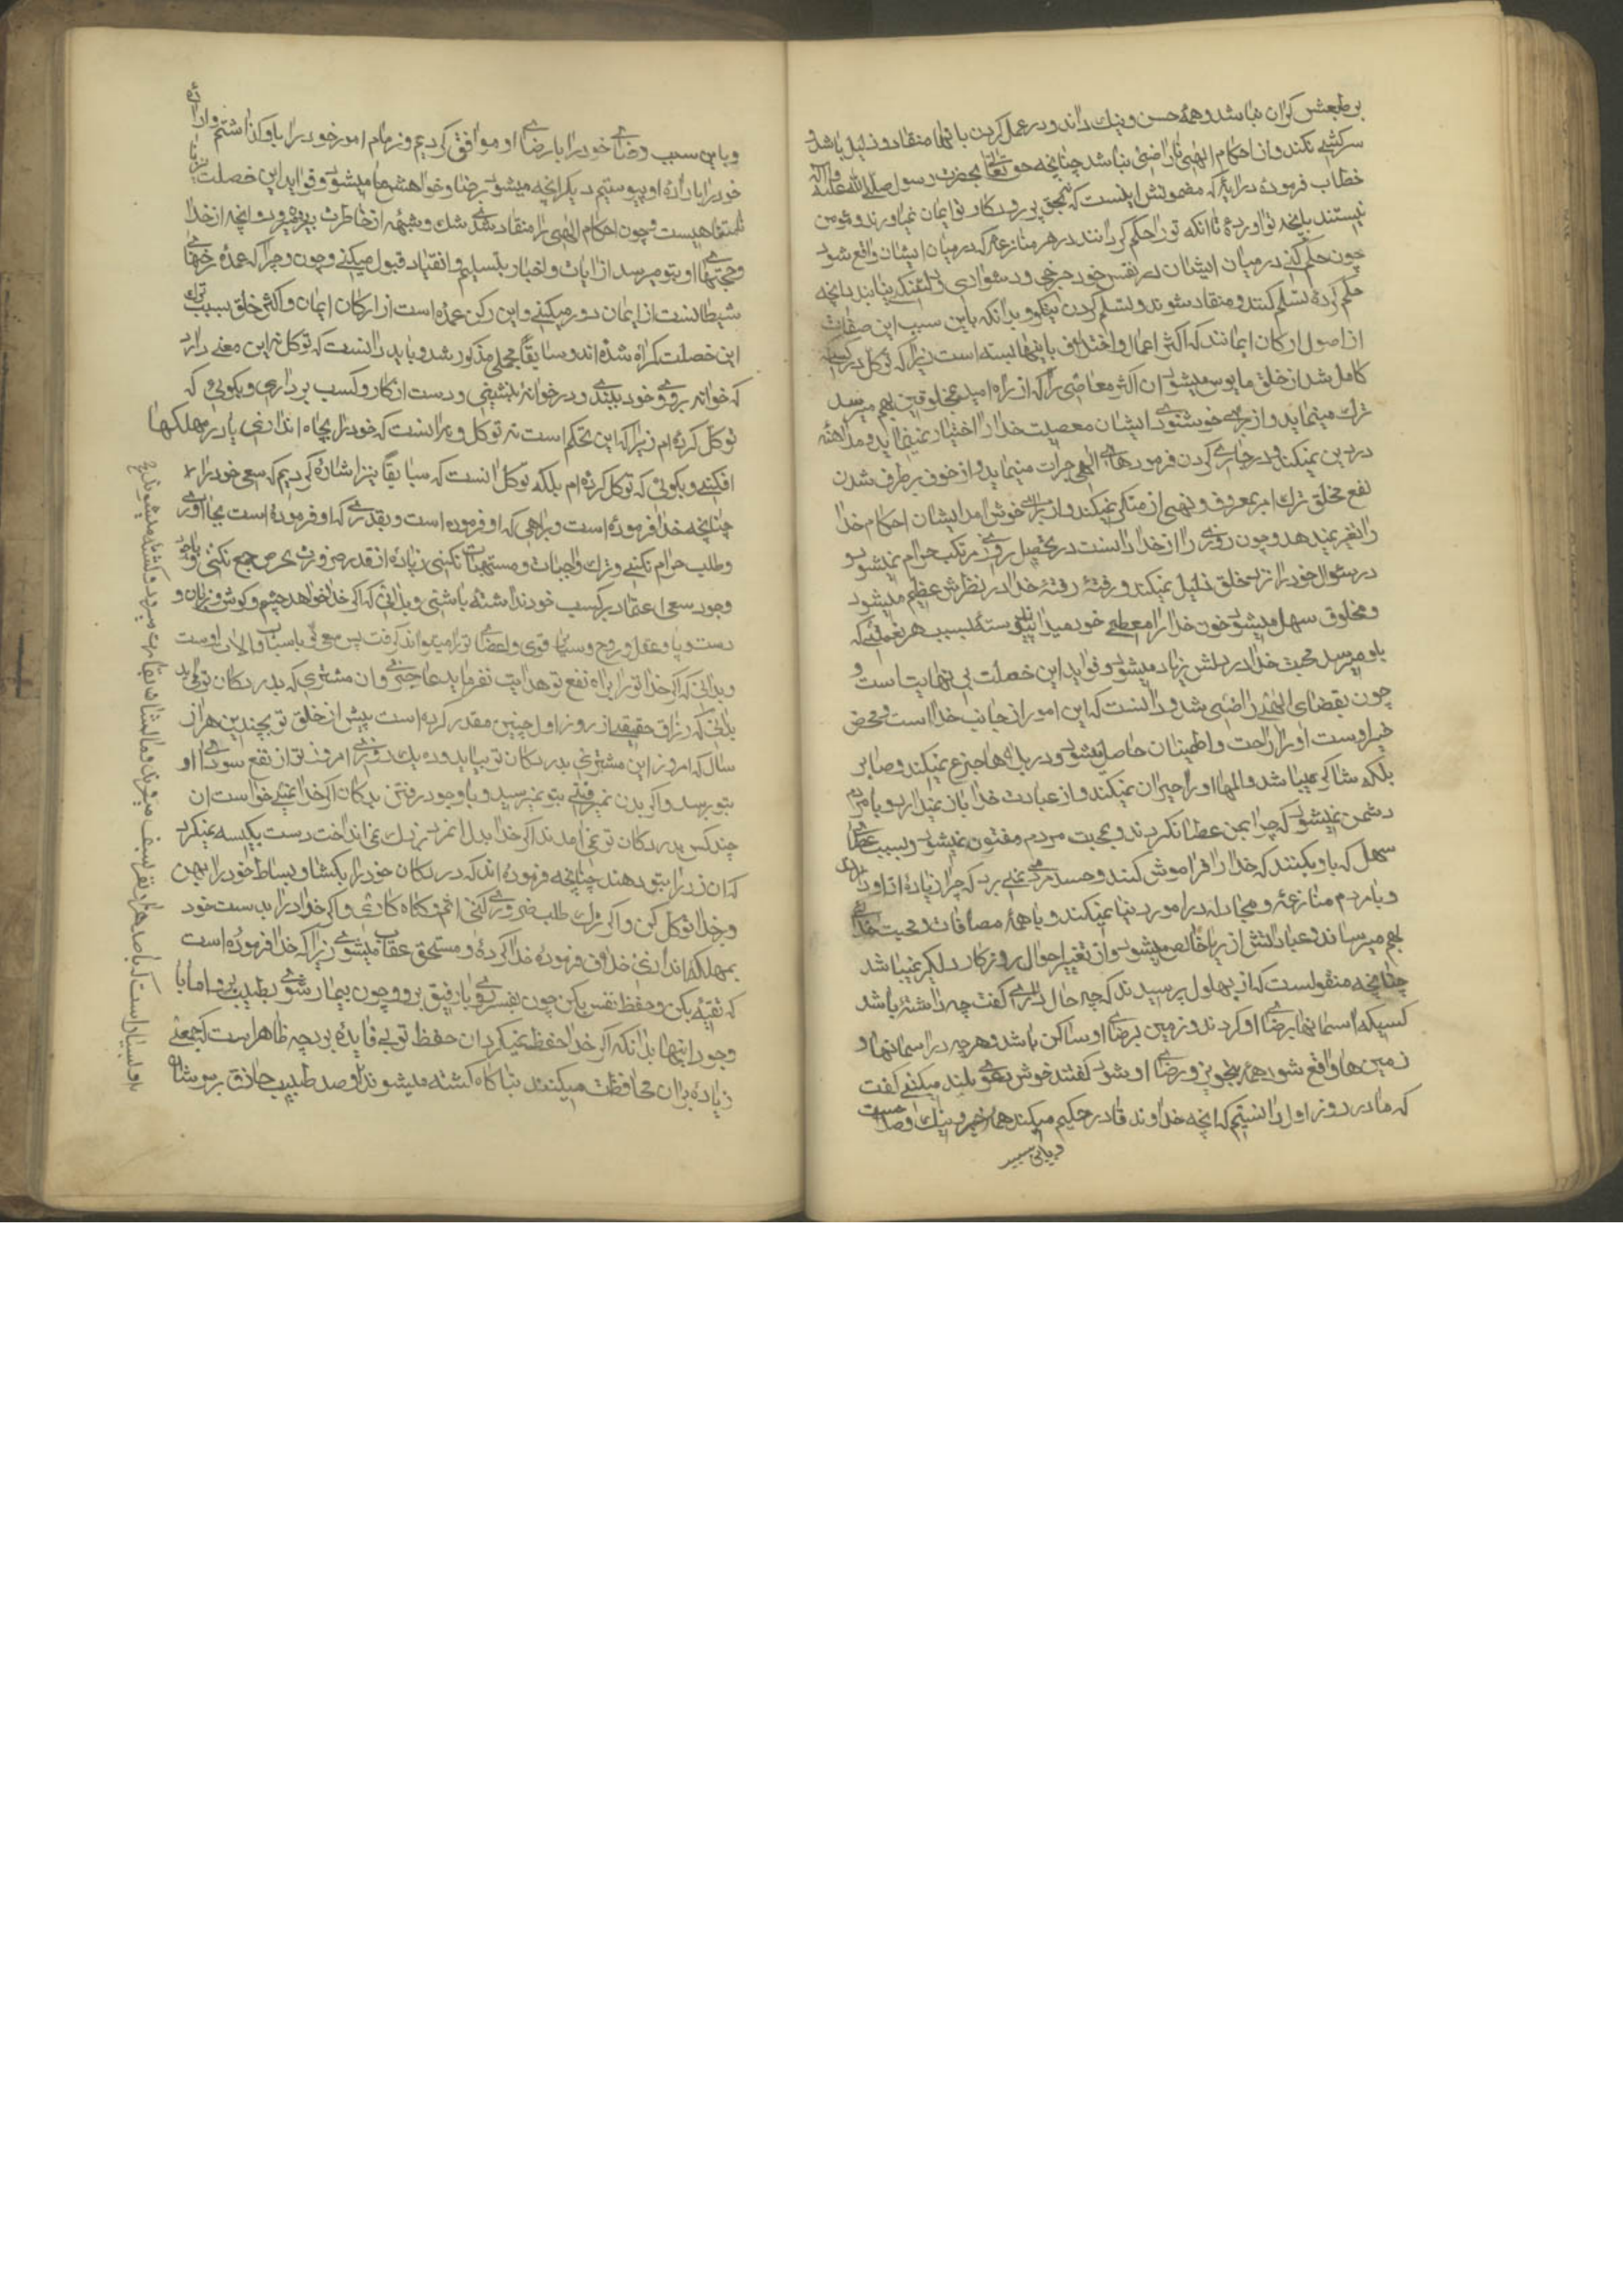 بر طبعش گران نباشد و همه حسن و نیك داند و در عمل کردن بانها منقاد و ذلیل باشد و
سرکشی نکند و از احکام الهی ناراضی نباشد چنانچه حق تعالی بحضرت رسول صلی الله علیه واله
خطاب فرموده در ایهٔ که مضمونش اینست که بحق پروردکار تو ایمان نمی‌اورند و مومن
نیستند بانچه تو اوردهٔ تا انکه تو را حکم گردانند در هر منازعهٔ که در میان ایشان واقع شود
چون حکم کنی در میان ایشان در نفس خود حرجی و دشواری و دلتنگی نیابند بانچه
حکم کردهٔ تسلیم کنند و منقاد شوند و تسلیم کردن نیکو و بدانکه باین سبب این صفات
از اصول ارکان ایمانند که اکثر اعمال و اخلاق باینها بسته است زیرا که توکل در کسیکه
کامل شد از خلق مایوس میشود و ان اکثر معاصی را که از راه امید بمخلوقین بهم میرسد
ترك مینماید و از برای خوشنودی ایشان معصیت خدا را اختیار نمینماید و مداهنه
در دین نمیکند و در جاری کردن فرمودهای الهی جرات مینماید و از خوف برطرف شدن
نفع مخلق ترك امر بمعروف و نهی از منکر نمیکند و از برای خوش امد ایشان احکام خدا
را تغیر نمیدهد و چون روزی را از خدا دانست در تحصیل روزی مرتکب حرام نمیشود و
در سئوال خود را نزد خلق ذلیل نمیکند و رفته رفته خدا در نظرش عظیم میشود
و مخلوق سهل میشود و چون خدا را معطی خود میداند پیوسته بسبب هر نعمتی که
باو میرسد محبت خدا در دلش زیاد میشود و فواید این خصلت بی نهایت است و
چون بقضای الهی راضی شد و دانست که این امور از جانب خدا است و محض
خیر اوست او را راحت و اطمینان حاصل میشود و در بلاها جزع نمیکند و صابر
بلکه شاکر میباشد و المها او را حیران نمیکند و از عبادت خدا باز نمیدارد و با مردم
دشمن نمیشود که چرا بمن عطا نکردند و بمحبت مردم مفتون نمیشود و بسبب عطای
سهل که باو بکنند که خدا را فراموش کند و حسد مردم نمی برد که چرا زیاده از او دارند
و با مردم منازعه و مجادله در امور دنیا نمیکند و با همه مصافات و محبت خدائی
بهم میرساند و عباداتش از ریا خالص میشود و از تغییر احوال روزکار دلگیر نمیباشد
چنانچه منقولست که از بهلول پرسیدند که چه حال داری گفت چه داشته باشد
کسیکه اسمانها برضای او گردند و زمین برضای او ساکن باشد و هر چه در اسمانها و
زمین ها واقع شود همه بتجویز و رضای او شود گفتند خوش دعوی بلند میکنی گفت
که ما در روز اول دانستیم که انچه خداوند قادر حکیم میکند همه خیر و نیك و صلاحست
و باین سبب
و باین سبب رضای خود را با رضای او موافق کردیم و زمام امور خود را باو گذاشتیم و اراده
خود را باراده او پیوستیم دیگر انچه میشود برضا و خواهش ما میشود و فواید این خصلت نیز
نامتناهیست و چون احکام الهی را منقاد شدی شك و شبهه از خاطرت بیرون میرود و انچه از خدا
و حجتهای او بتو میرسد از ایات و اخبار بتسلیم و انقیاد قبول میکنی و چون و چرا که عمده رخنهای
شیطانست از ایمان دور میکنی و این رکن عمده است از ارکان ایمان و اکثر خلق بسبب ترك
این خصلت گمراه شده‌اند و سابقاً مجملی مذکور شد و باید دانست که توکل نه این معنی دارد
که خوانه بروی خود ببندی و در خوانه بنشینی و دست از کار و کسب برداری و بگوئی که
توکل کرده‌ام زیرا که این تحکم است نه توکل و بدانست که خود را بچاه اندازی یا در مهلکها
افکنی و بگوئی که توکل کرده‌ام بلکه توکل انست که سابقاً نیز اشاره کردیم که سعی خود را
چنانچه خدا فرموده است و براهی که او فرموده است و بقدری که او فرموده است بجا اوری
و طلب حرام نکنی و ترك واجبات و مستحبات نکنی زیاده از قدر ضرورت بحرص جمع نکنی و با
وجود سعی اعتماد بر کسب خود نداشته باشی و بدانی که اگر خدا نخواهد چشم و گوش و زبان و
دست و پا و عقل و روح و سایر قوی و اعضای تو را میتواند گرفت پس سعی تو باسباب و الات اوست
و بدانی که اگر خدا تو را براه نفع تو هدایت نفرماید عاجزی و ان مشتری که بدر دکان تو می‌اید
بدانی که رزاق حقیقی از روز اول چنین مقدر کرده است پیش از خلق تو بچندین هزار
سال که امروز این مشتری بدر دکان تو بیاید و ده یك روزی امروز تو از نفع سودای او
بتو برسد و اگر بدن نمیرفتی بتو نمیرسید و با وجود رفتن بدکان اگر خدا نمیخواست ان
چند کس بدر دکان تو نمی‌امدند اگر خدا بدل انمرد نمی انداخت دست بکیسه نمیکرد
که ان زر را بتو دهند چنانچه فرموده‌اند که در دکان خود را بگشا و بساط خود را پهن
و بخدا توکل کن و اگر ترك طلب ضروری کنی اثم و گناه کاری و اگر خود را بدست خود
بمهلکه اندازی خلاف فرموده خدا کرده و مستحق عقاب میشوی زیرا که خدا فرموده است
که تقیه بکن و حفظ نفس بکن چون بسفر روی با رفیق برو و چون بیمار شوی بطبیب برو اما با
وجود اینها بدانکه اگر خدا حفظ نمیکرد ان حفظ تو بی فایده بود چه ظاهر است که جمعی
زیاده بر ان محافظت میکنند بناگاه کشته میشوند و صد طبیب حاذق بر سر شان